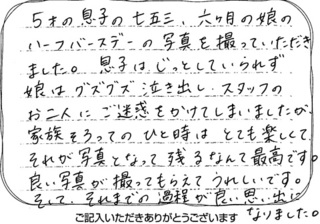 5才の息子の七五三、六ヶ月の娘の
ハーフバースデーの写真を撮っていただき
ました。息子はじっとしていられず
娘はグズグズ泣き出し、スタッフの
お二人にご迷惑をかけてしまいましたが
家族そろってのひと時はとても楽しくて
それが写真となって残るなんて最高です。
良い写真が撮ってもらえてうれしいです。
そして、それまでの過程が良い思い出に
なりました。
ご記入いただきありがとうございます